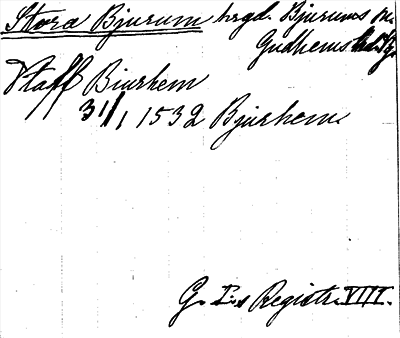 Stora Bjurum hrgd. Bjurums sn.
Gudhems hd
Staff Biurhem
31/1 1532 Bjurhem
G. I:s Registr. VIII.